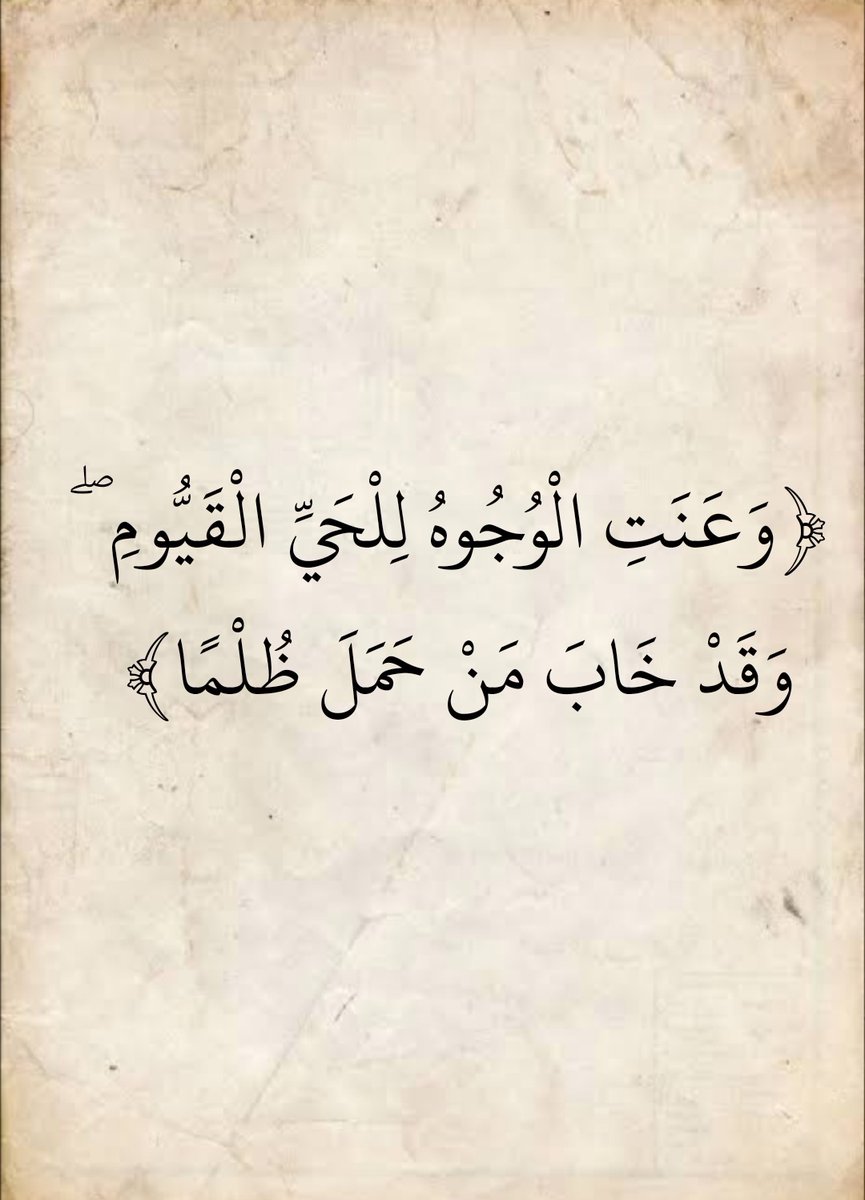 ﴿وَعَنَتِ الْوُجُوهُ لِلْحَيِّ الْقَيُّومِ ۖ
وَقَدْ خَابَ مَنْ حَمَلَ ظُلْمًا﴾